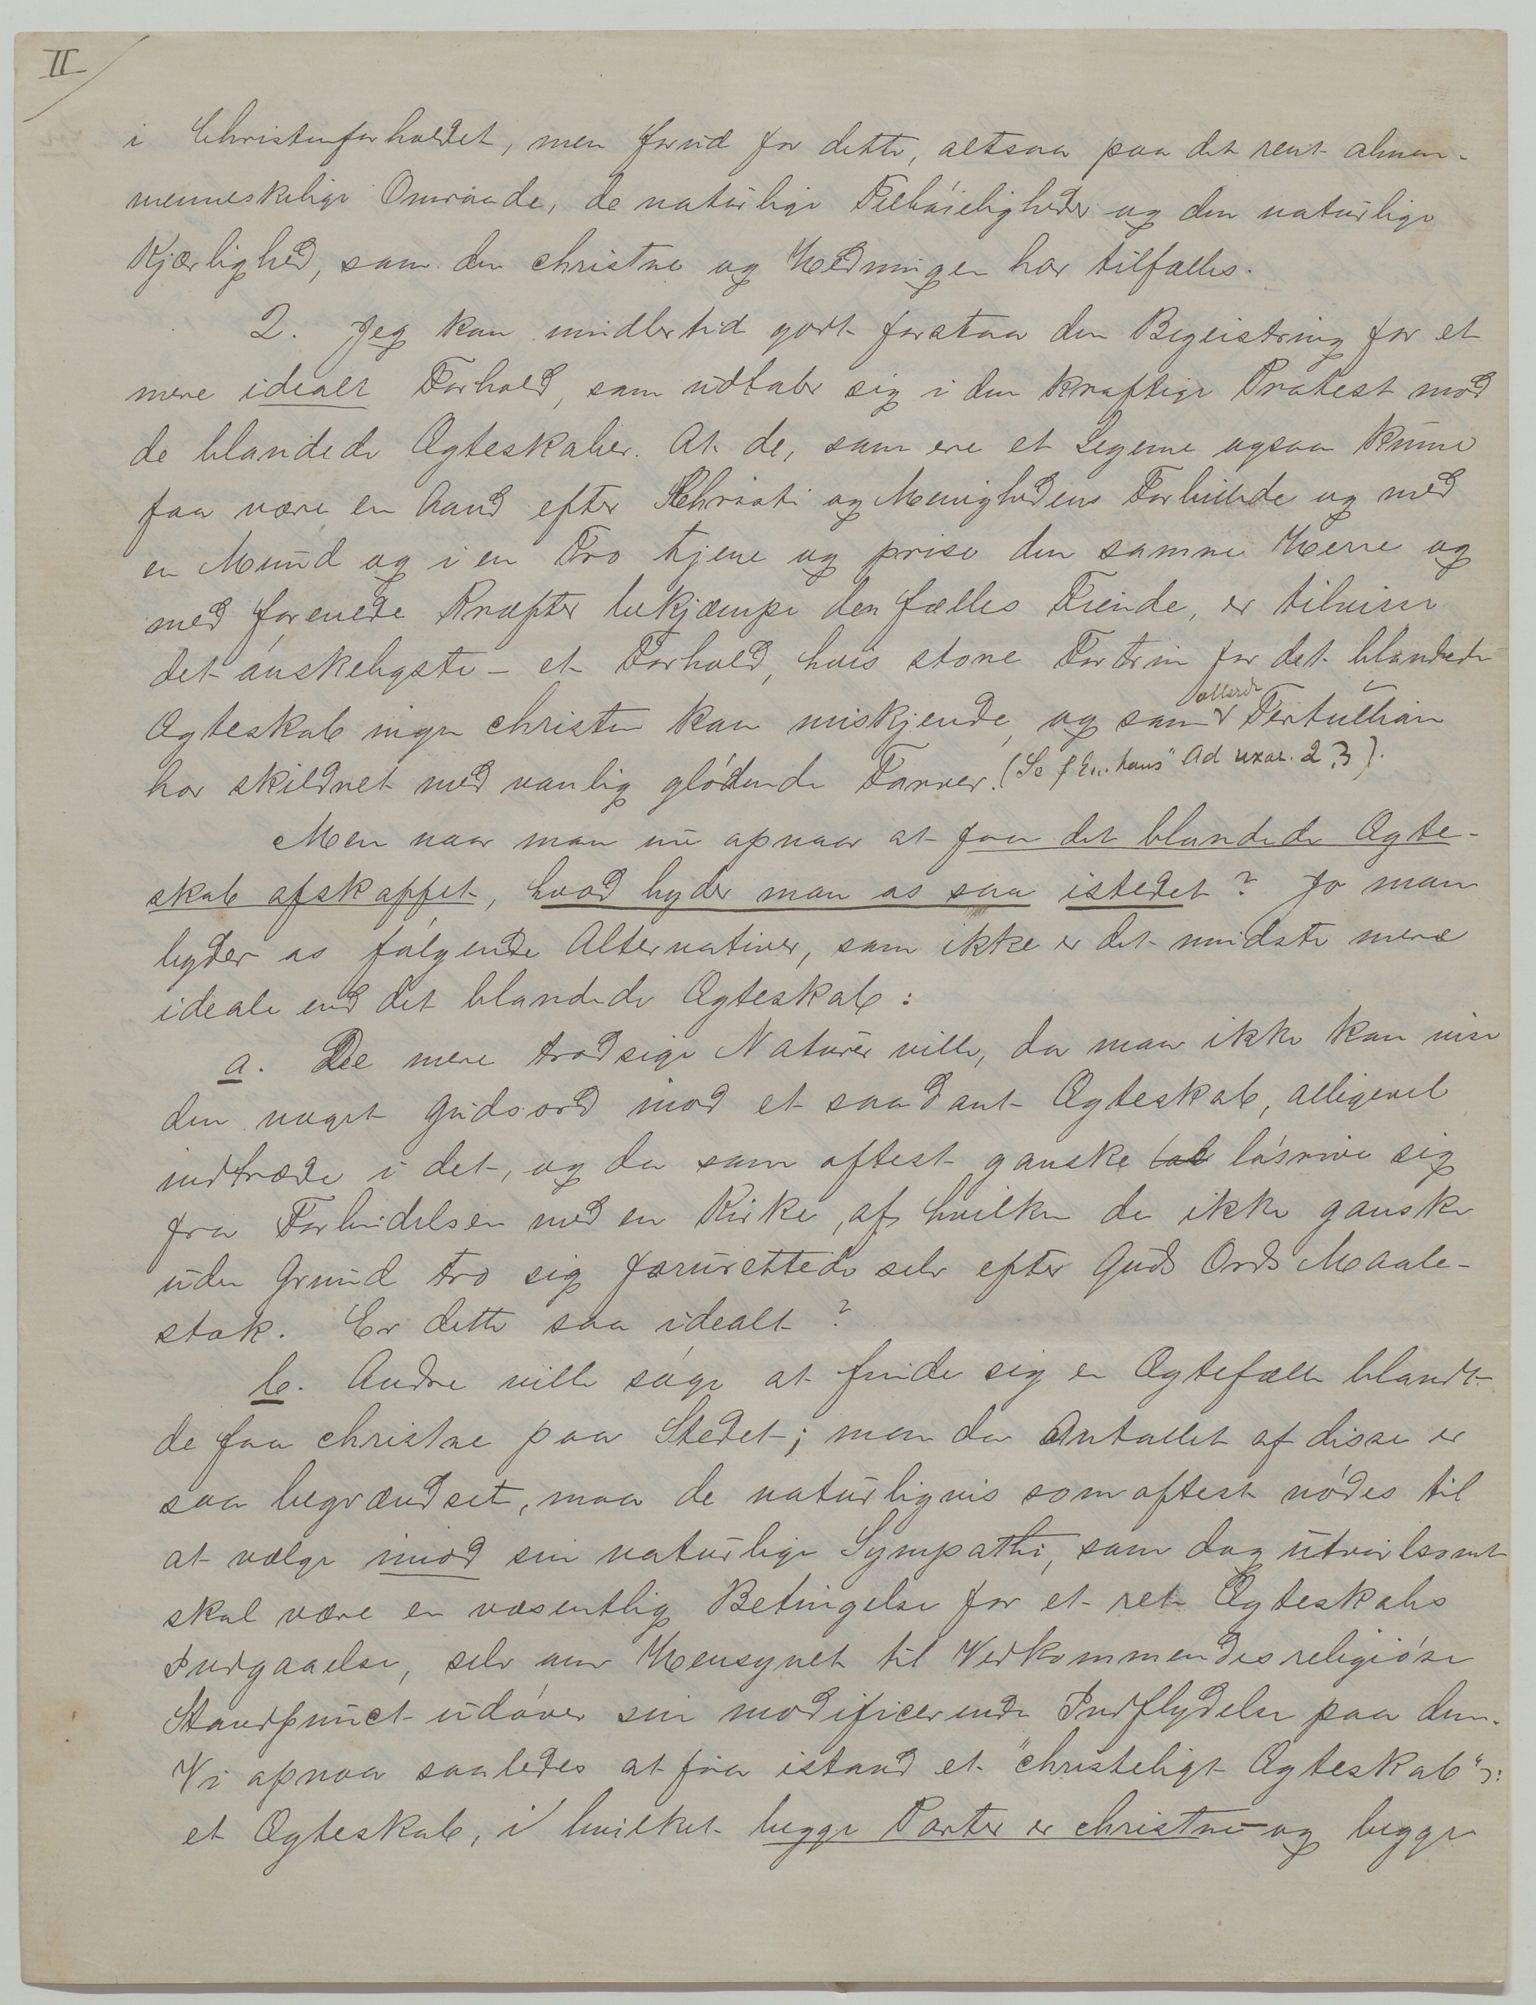 II
i Christenforholdet, men forud for dette, altsaa paa det rent almen-
menneskelige Omraade, de naturlige Tilbøieligheder og den naturlige
Kjærlighed, som den christne og Hedningen har tilfælles.
2. Jeg kan imidlertid godt forstaa den Begeistring for et
mere idealt Forhold, som udtaler sig i den kraftige Protest mod
de blandede Ægteskaber. At de, som ere et Legeme ogsaa kunne
faa være en Aand efter Christi og Menighedens Forbillede og med
en Mund og i en Tro tjene og prise den samme Herre og
med forenede Kræfter bekjæmpe den fælles Fiende, er tilvisse
det ønskeligste – et Forhold, hvis store Fortrin for det blandede
Ægteskab ingen christen kan miskjende, og som allerede Tertullian
har skildret med vanlig glødende Farver. (Se f Ex. hans "Ad uxor. 2,3).
Men naar man nu opnaar at faa det blandede Ægte-
skab afskaffet, hvad byder man os saa istedet? Jo man
byder os følgende Alternativer, som ikke er det mindste mere
ideale end det blandede Ægteskab:
a. De mere trodsige Naturer ville, da man ikke kan vise
dem noget Gudsord mod et saadant Ægteskab, alligevel
indtræde i det, og da som oftest ganske løsrive sig
fra Forbindelsen med en Kirke, af hvilken de ikke ganske
uden Grund tro sig forurettede selv efter Guds Ords Maale-
stok. Er dette saa idealt?
b. Andre ville søge at finde sig en Ægtefælle blandt
de faa christne paa Stedet; men da Antallet af disse er
saa begrændset, maa de naturligvis som oftest nødes til
at vælge imod sin naturlige Sympathi, som dog utvivlsomt
skal være en væsentlig Betingelse for et ret Ægteskabs
Indgaaelse, selv om Hensynet til Vedkommendes religiøse
Standpunct udøver sin modificerende Indflydelse paa den.
Vi opnaa saaledes at faa istand et "christeligt Ægteskab" ɔ:
et Ægteskab, i hvilket begge Parter er christne og begge